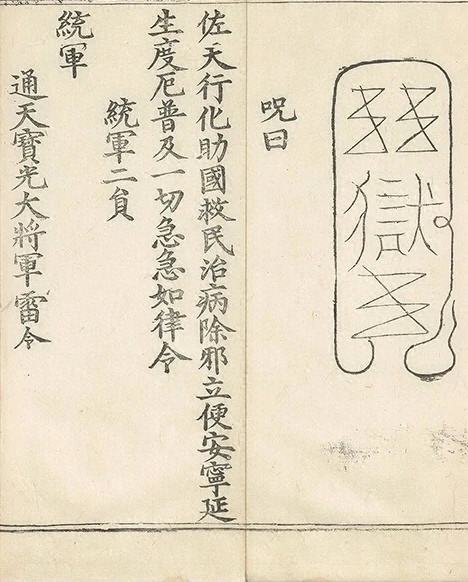 獄
咒曰
佐天行化助國救民治病除邪立便安寧延
生度厄普及一切急急如律令
統軍二負
統軍
通天寶光大將軍雷令